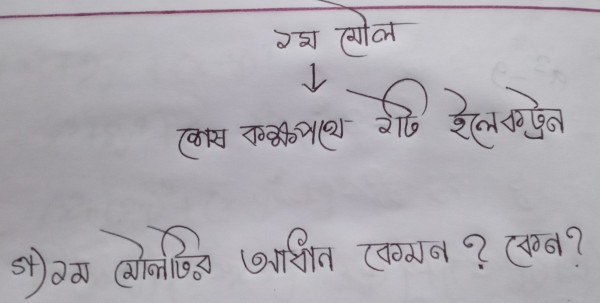 ২য় মৌল
↓
শেষ কক্ষপথে ২টি ইলেকট্রন
গ) ২য় মৌলটির আধান কেমন? কেন?